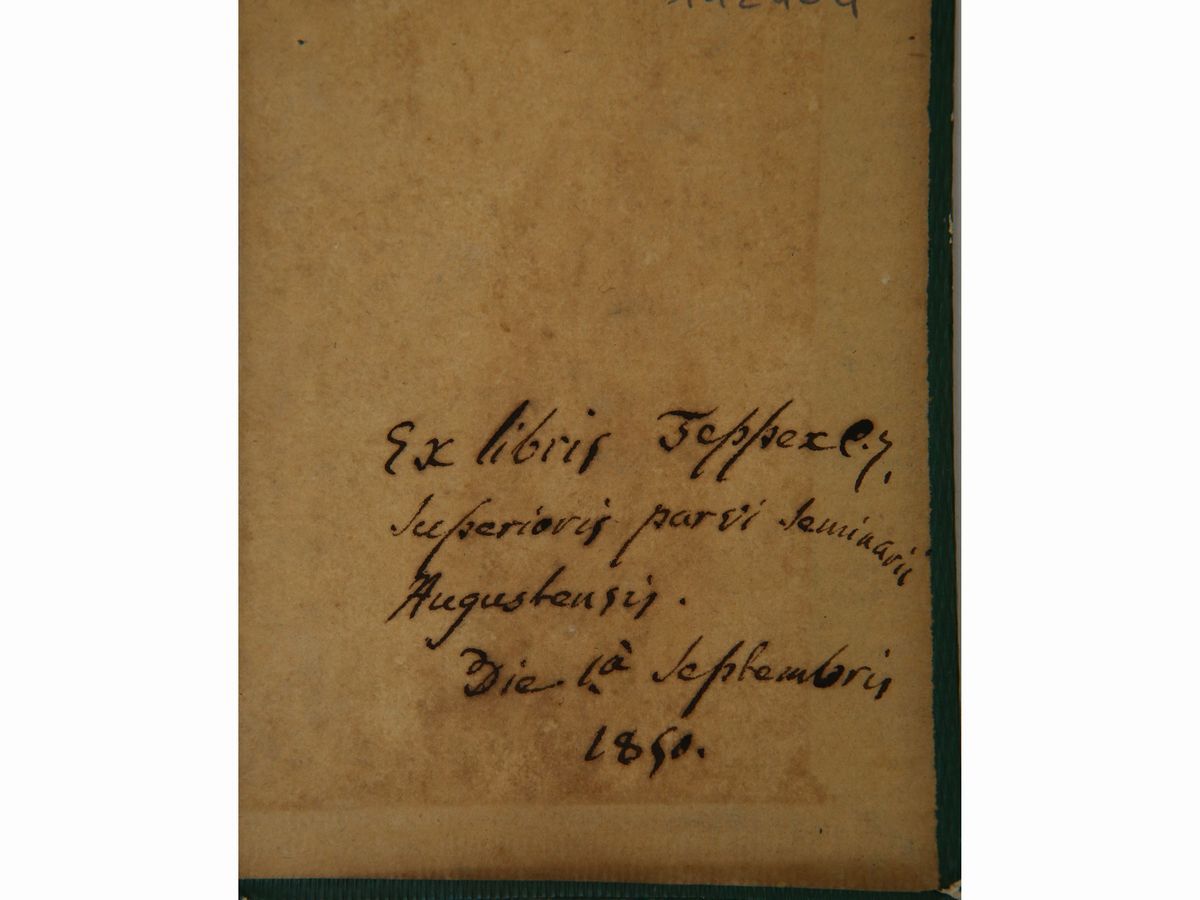 Ex libris Teppex C. J.
Superioris parvi Seminarii
Augustensis.
Die 1.à Septembris
1850.